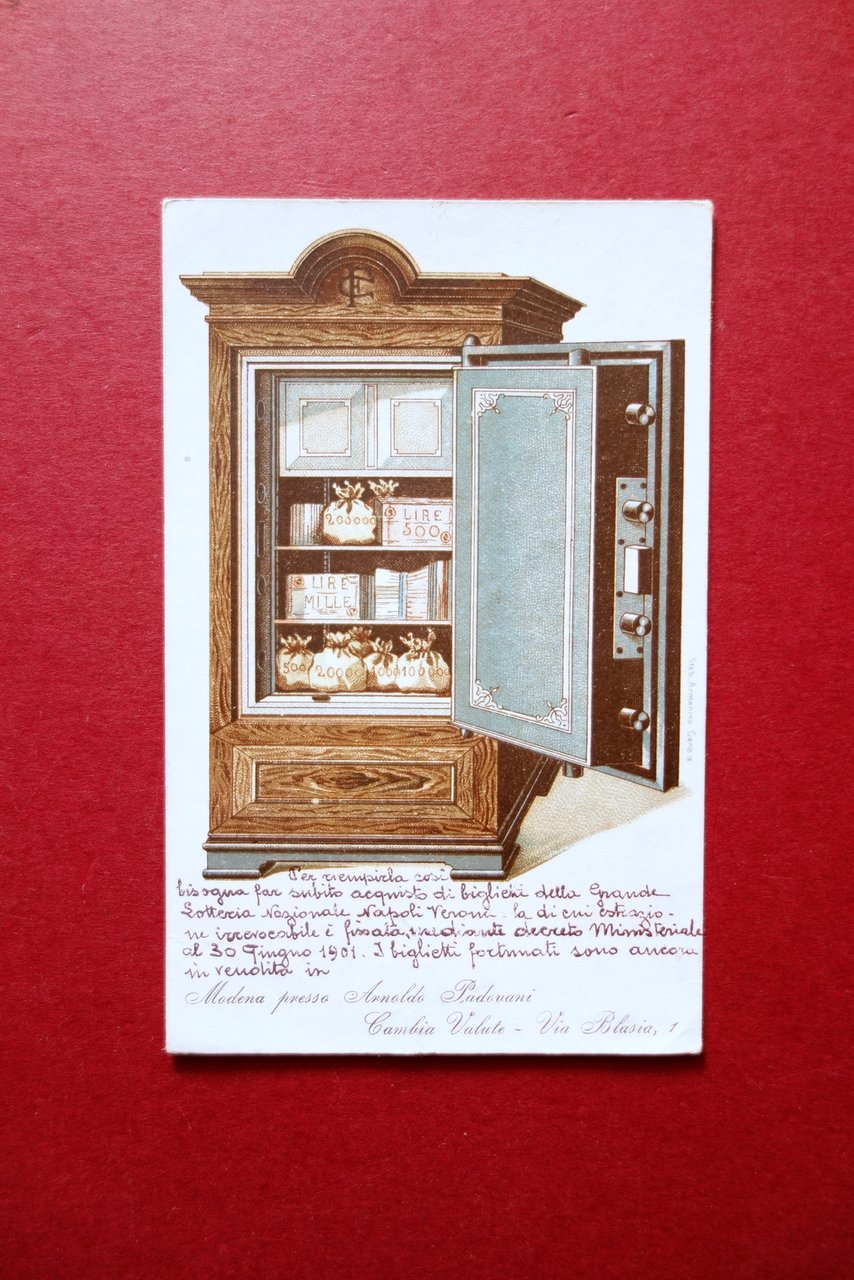 FC
200000
LIRE
500
LIRE
MILLE
500
2000
1000
100000
Stab. Armanino Genova
Per riempirla così
bisogna far subito acquisto di biglietti della Grande
Lotteria Nazionale Napoli Verona - la di cui estrazio-
ne irrevocabile è fissata, mediante decreto Ministeriale
al 30 Giugno 1901. I biglietti fortunati sono ancora
in vendita in
Modena presso Arnoldo Padovani
Cambia Valute - Via Blasia, 1